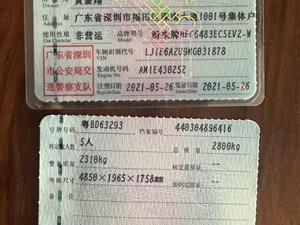 广东省深圳市福田区 1001号集体户
使用性质 非营运 品牌型号 HFC6483EC5EV2-W
Use Character
广东省深圳市公安局交通警察支队
车辆识别代号 LJ1E6A2U9MG031878
VIN
发动机号码 AM1E430252
Engine No.
注册日期 2021-05-26 发证日期 2021-05-26
号牌号码 粤BD63293 档案编号 440304896416
核定载人数 5人 总质量 2800kg
整备质量 2310kg 核定载质量
外廓尺寸 4850×1965×1758mm